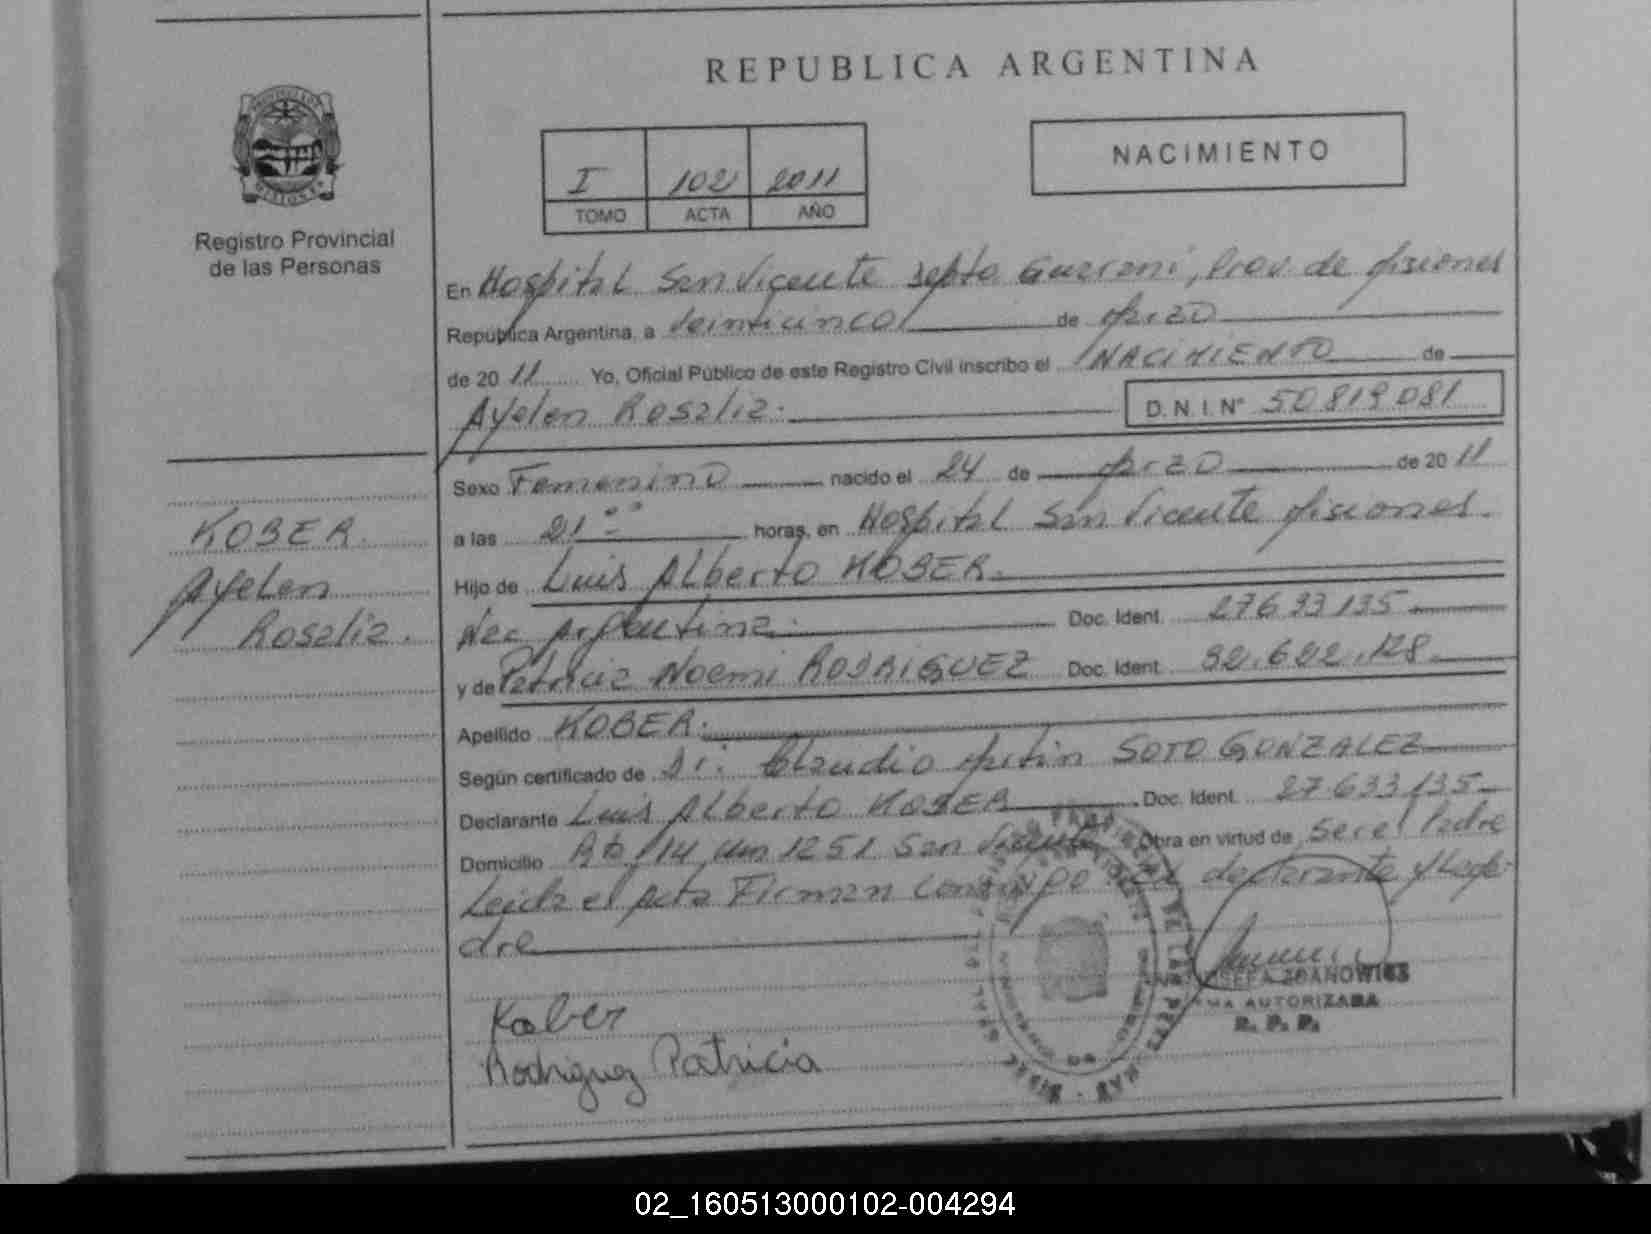 REPUBLICA ARGENTINA
NACIMIENTO
I 102 2011
TOMO ACTA AÑO
Registro Provincial
de las Personas
En Hospital San Vicente Depto Guarani, Prov. de Misiones
República Argentina, a Veinticinco de Marzo
de 20 11 Yo, Oficial Público de este Registro Civil inscribo el NACIMIENTO de
Ayelen Rosalia. D.N.I. Nº 50819081
Sexo Femenino nacido el 24 de Marzo de 20 11
a las 21 horas, en Hospital San Vicente Misiones.
Hijo de Luis Alberto KOBER.
Nac Argentina. Doc. Ident. 27633135
y de Patricia Noemi RODRIGUEZ Doc. Ident. 32.622.128
Apellido KOBER.
Según certificado de Dr. Claudio Martin SOTO GONZALEZ
Declarante Luis Alberto KOBER Doc. Ident. 27.633.135
Domicilio Rta 14 Km 1251 San Vicente Obra en virtud de Ser el Padre
Leida el Acta Firman Conmigo el declarante y la Ma-
dre
KOBER.
Ayelen
Rosalia.
Kober
Rodriguez Patricia
JOSEFA ZDANOWICZ
FIRMA AUTORIZADA
R. P. P.
02_160513000102-004294